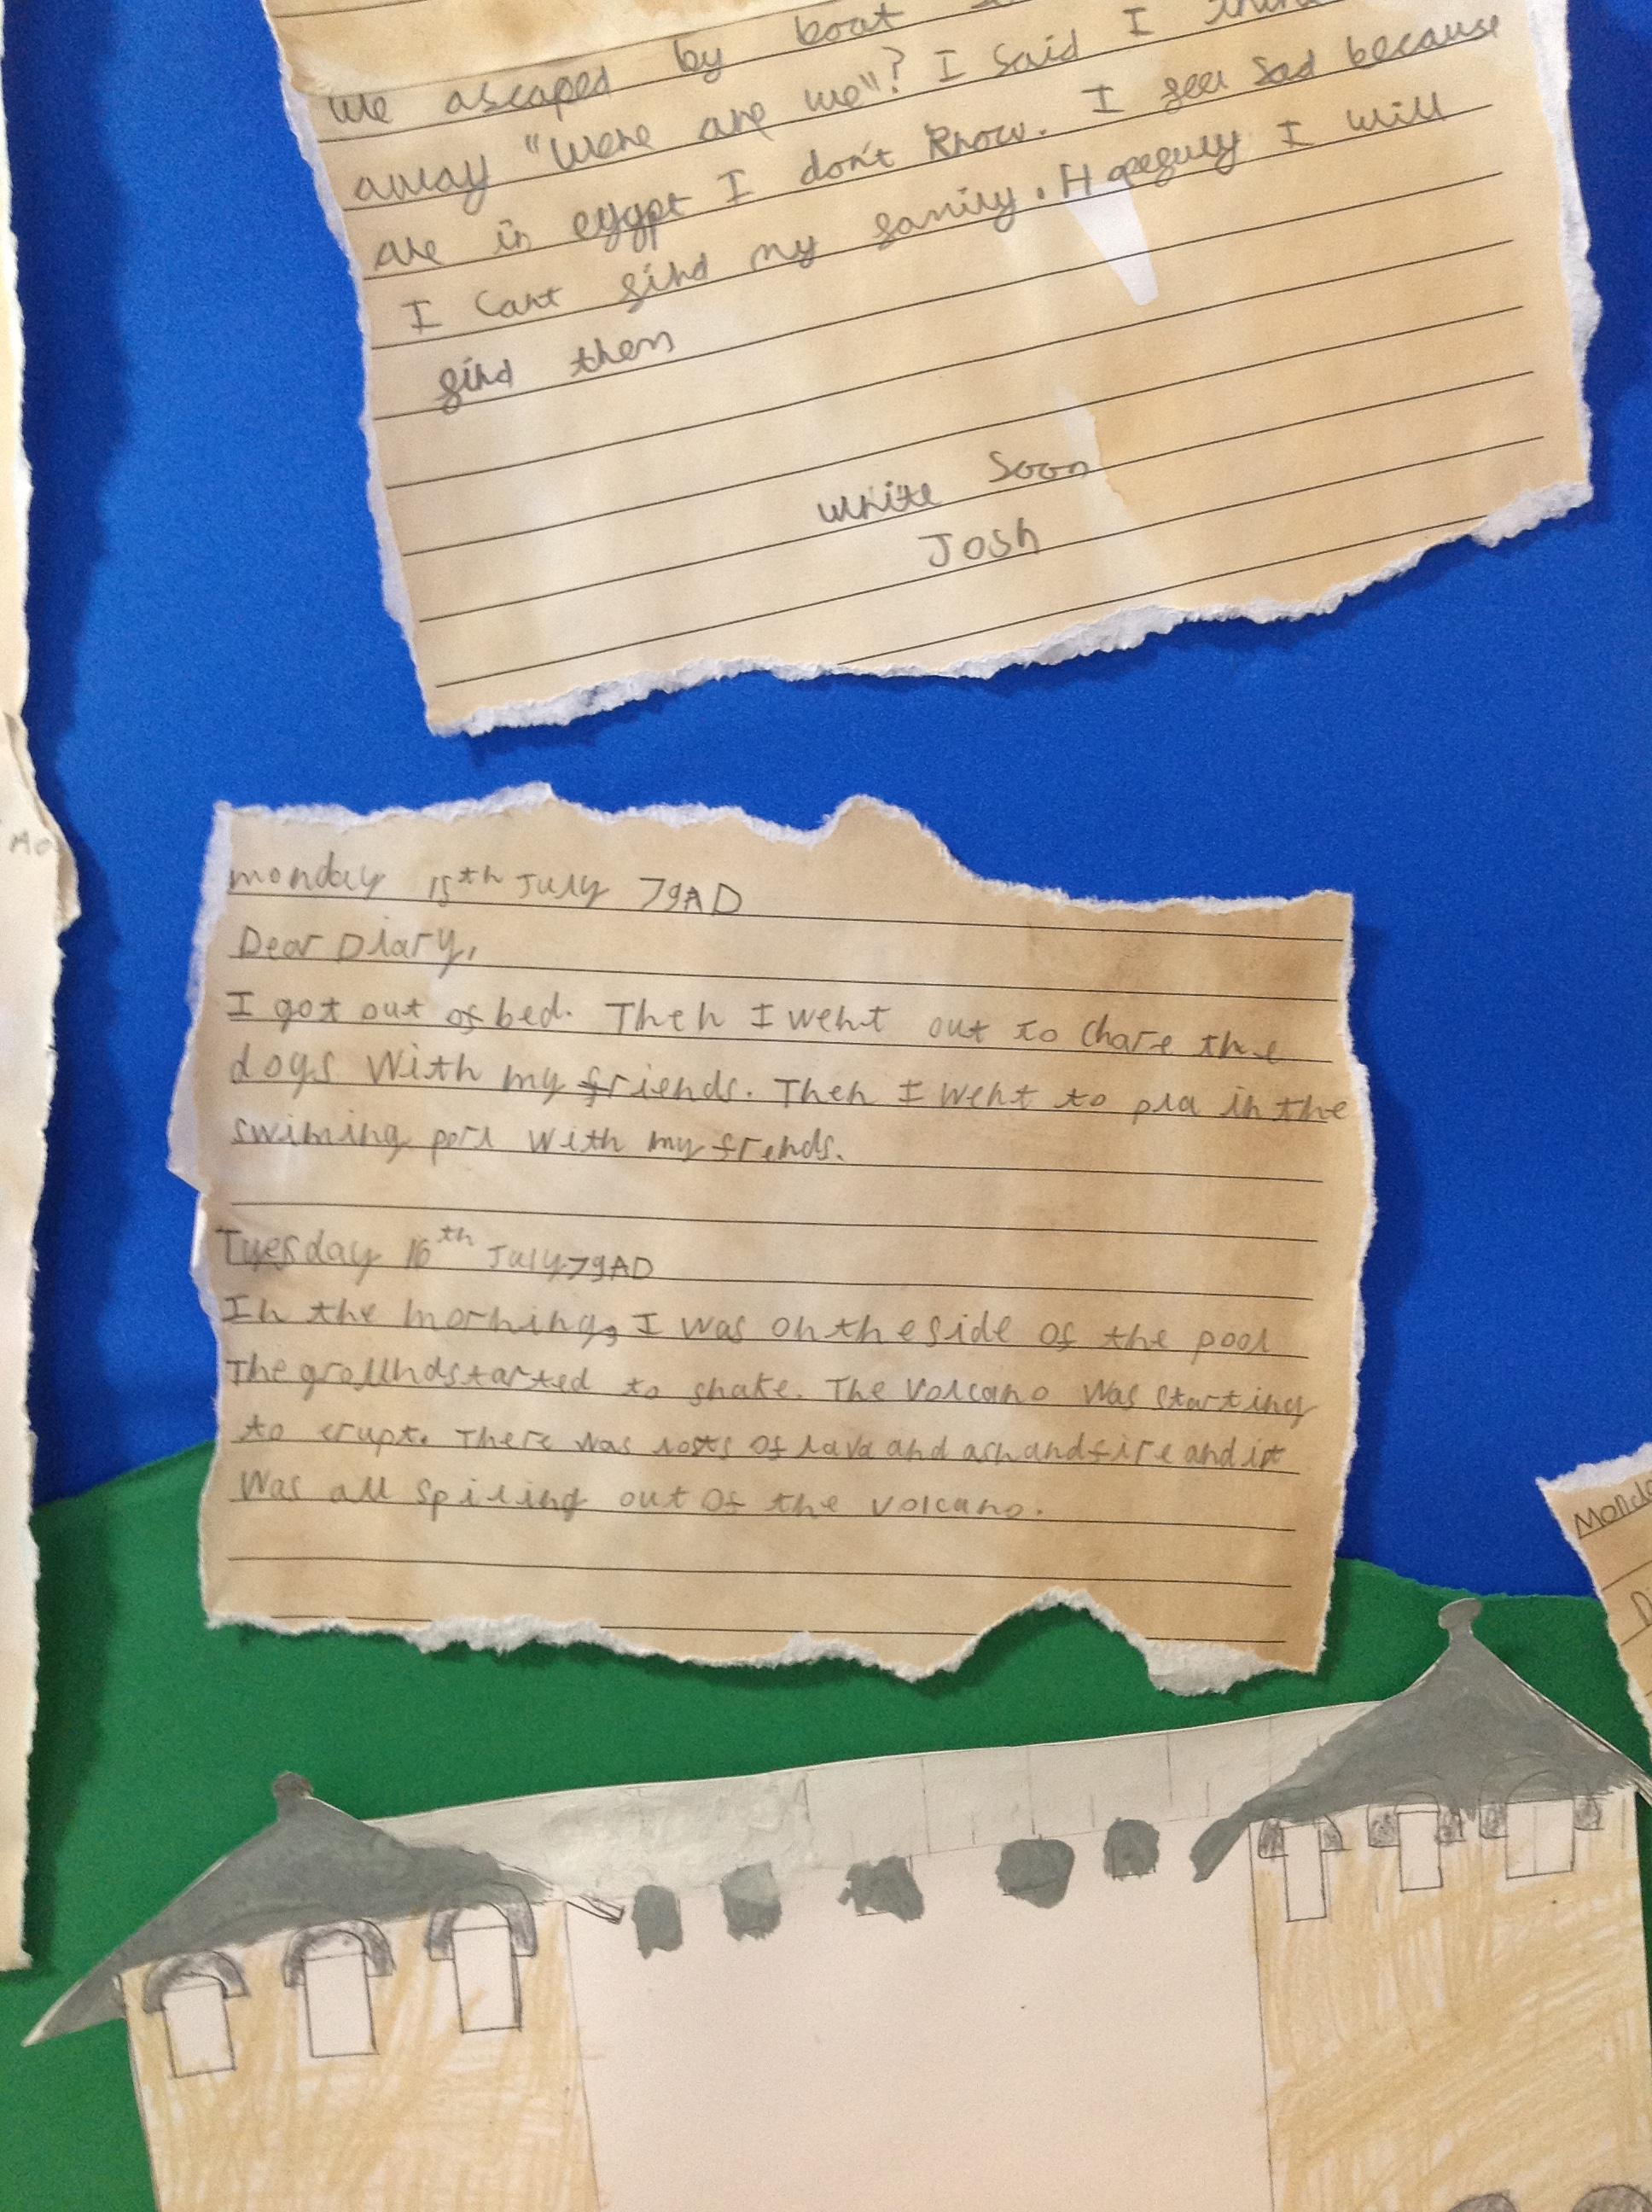 We ascaped by boat
away "Were are we"? I said I think
are in egypt I don't know. I feel sad because
I cant find my family. Hopefully I will
find them
write soon
Josh
Ao
monday 15th July 79AD
Dear Diary,
I got out of bed. Then I went out to chare the
dogs With my friends. Then I went to pla in the
swiming porl with my frends.
Tuesday 16th July 79AD
In the morning, I was on the side of the pool
The ground started to shake. The volcano was starting
to erupt. There was losts of lava and ash and fire and it
Was all spiling out of the volcano.
Monda
D